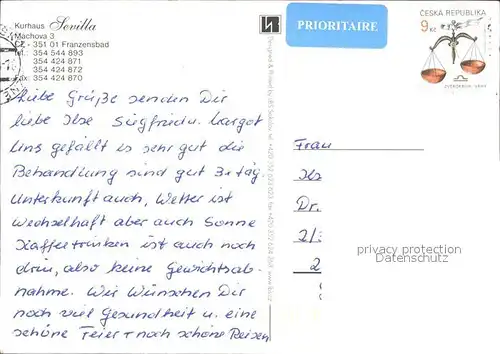 Kurhaus Sevilla
Máchova 3
CZ - 351 01 Franzensbad
Tel.: 354 544 893
354 424 871
354 424 872
Fax: 354 424 870
PRIORITAIRE
ČESKÁ REPUBLIKA
9 Kč
Liebe Grüße senden Dir
liebe Ilse Siegfried u. Margot
Uns gefällt es sehr gut die
Behandlung sind gut 3x täg.
Unterkunft auch, Wetter ist
wechselhaft aber auch Sonne
Kaffeetrinken ist auch noch
drin, also keine Gewichtsab-
nahme. Wir wünschen Dir
noch viel Gesundheit u. eine
schöne Feier + noch schöne Reisen
Frau
Ils
Dr.
2/
2
privacy protection
Datenschutz